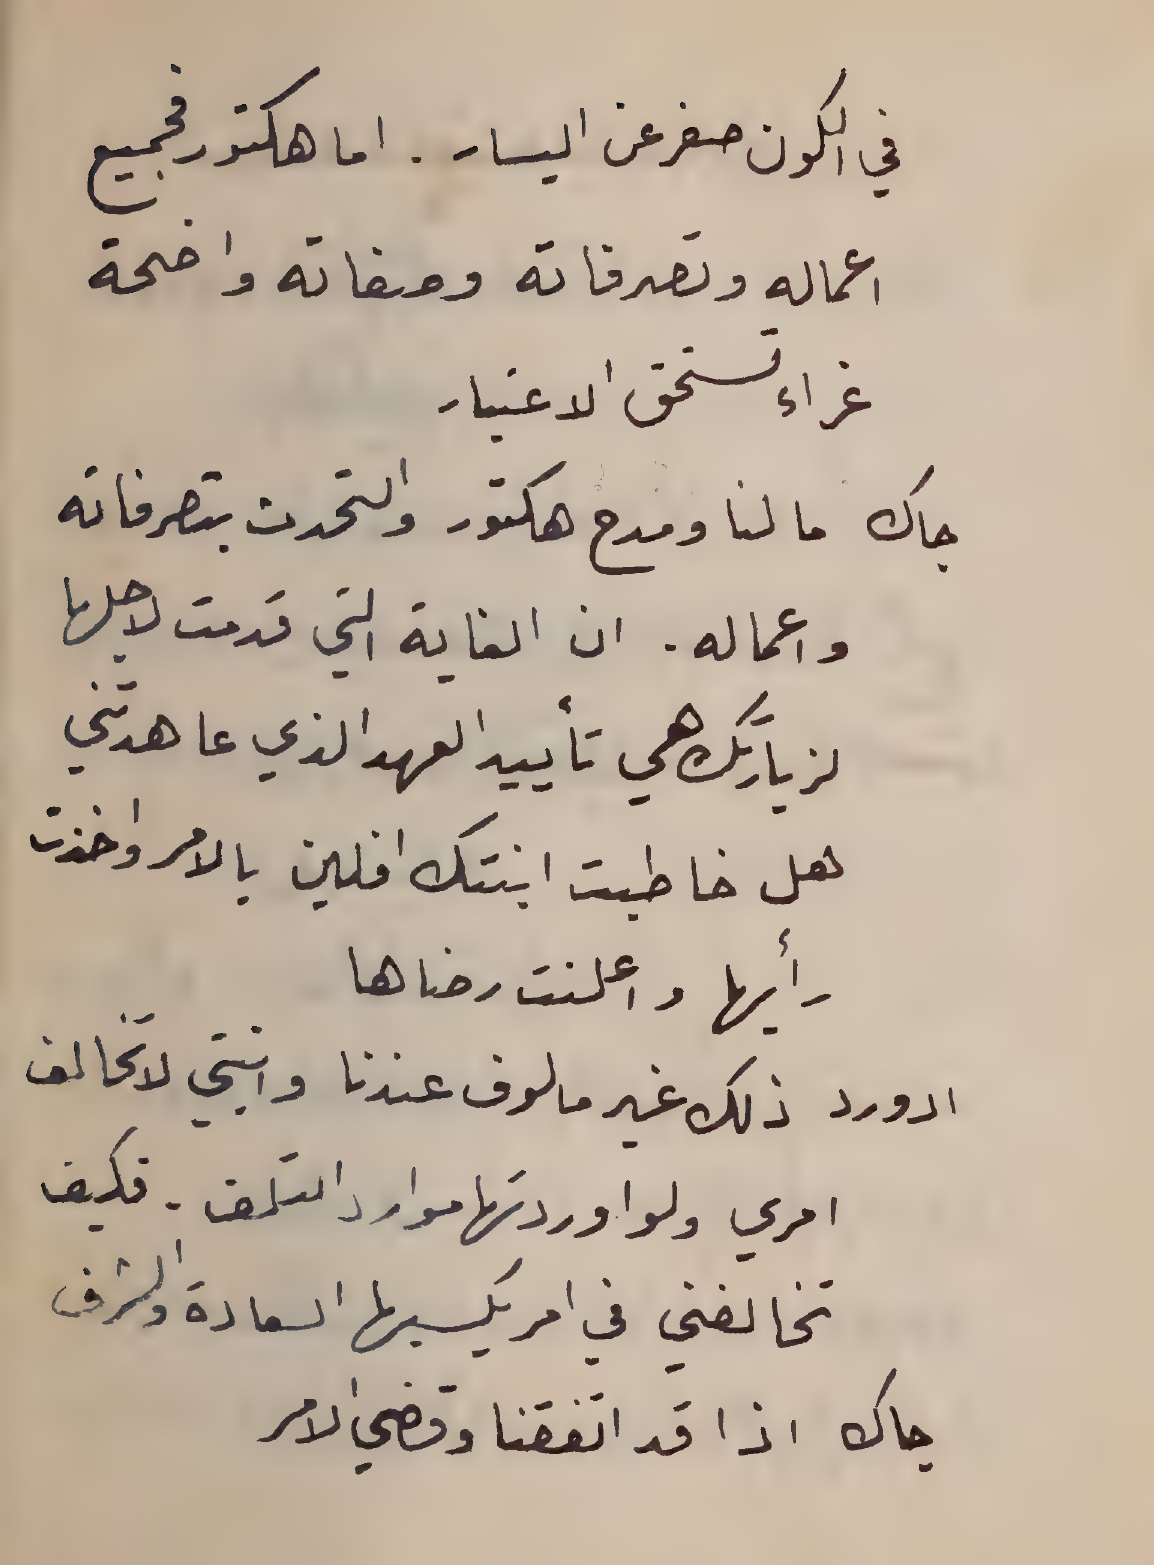 في الكون صفر عن اليسار . اما هكتور فجميع
اعماله وتصرفاته وصفاته واضحة
غراء تستحق الاعتبار
جاك ما لنا ومدح هكتور والتحدث بتصرفاته
واعماله . ان الغاية التي قدمت لاجلها
لزيارتك هي تأييد العهد الذي عاهدتني
هل خاطبت ابنتك افلين بالامر واخذت
رأيها واعلنت رضاها
ادورد ذلك غير مالوف عندنا وابنتي لا تخالف
امري ولو اوردتها موارد التلف . فكيف
تخالفني في امر يكسبها السعادة والشرف
جاك اذا قد اتفقنا وقضي الامر